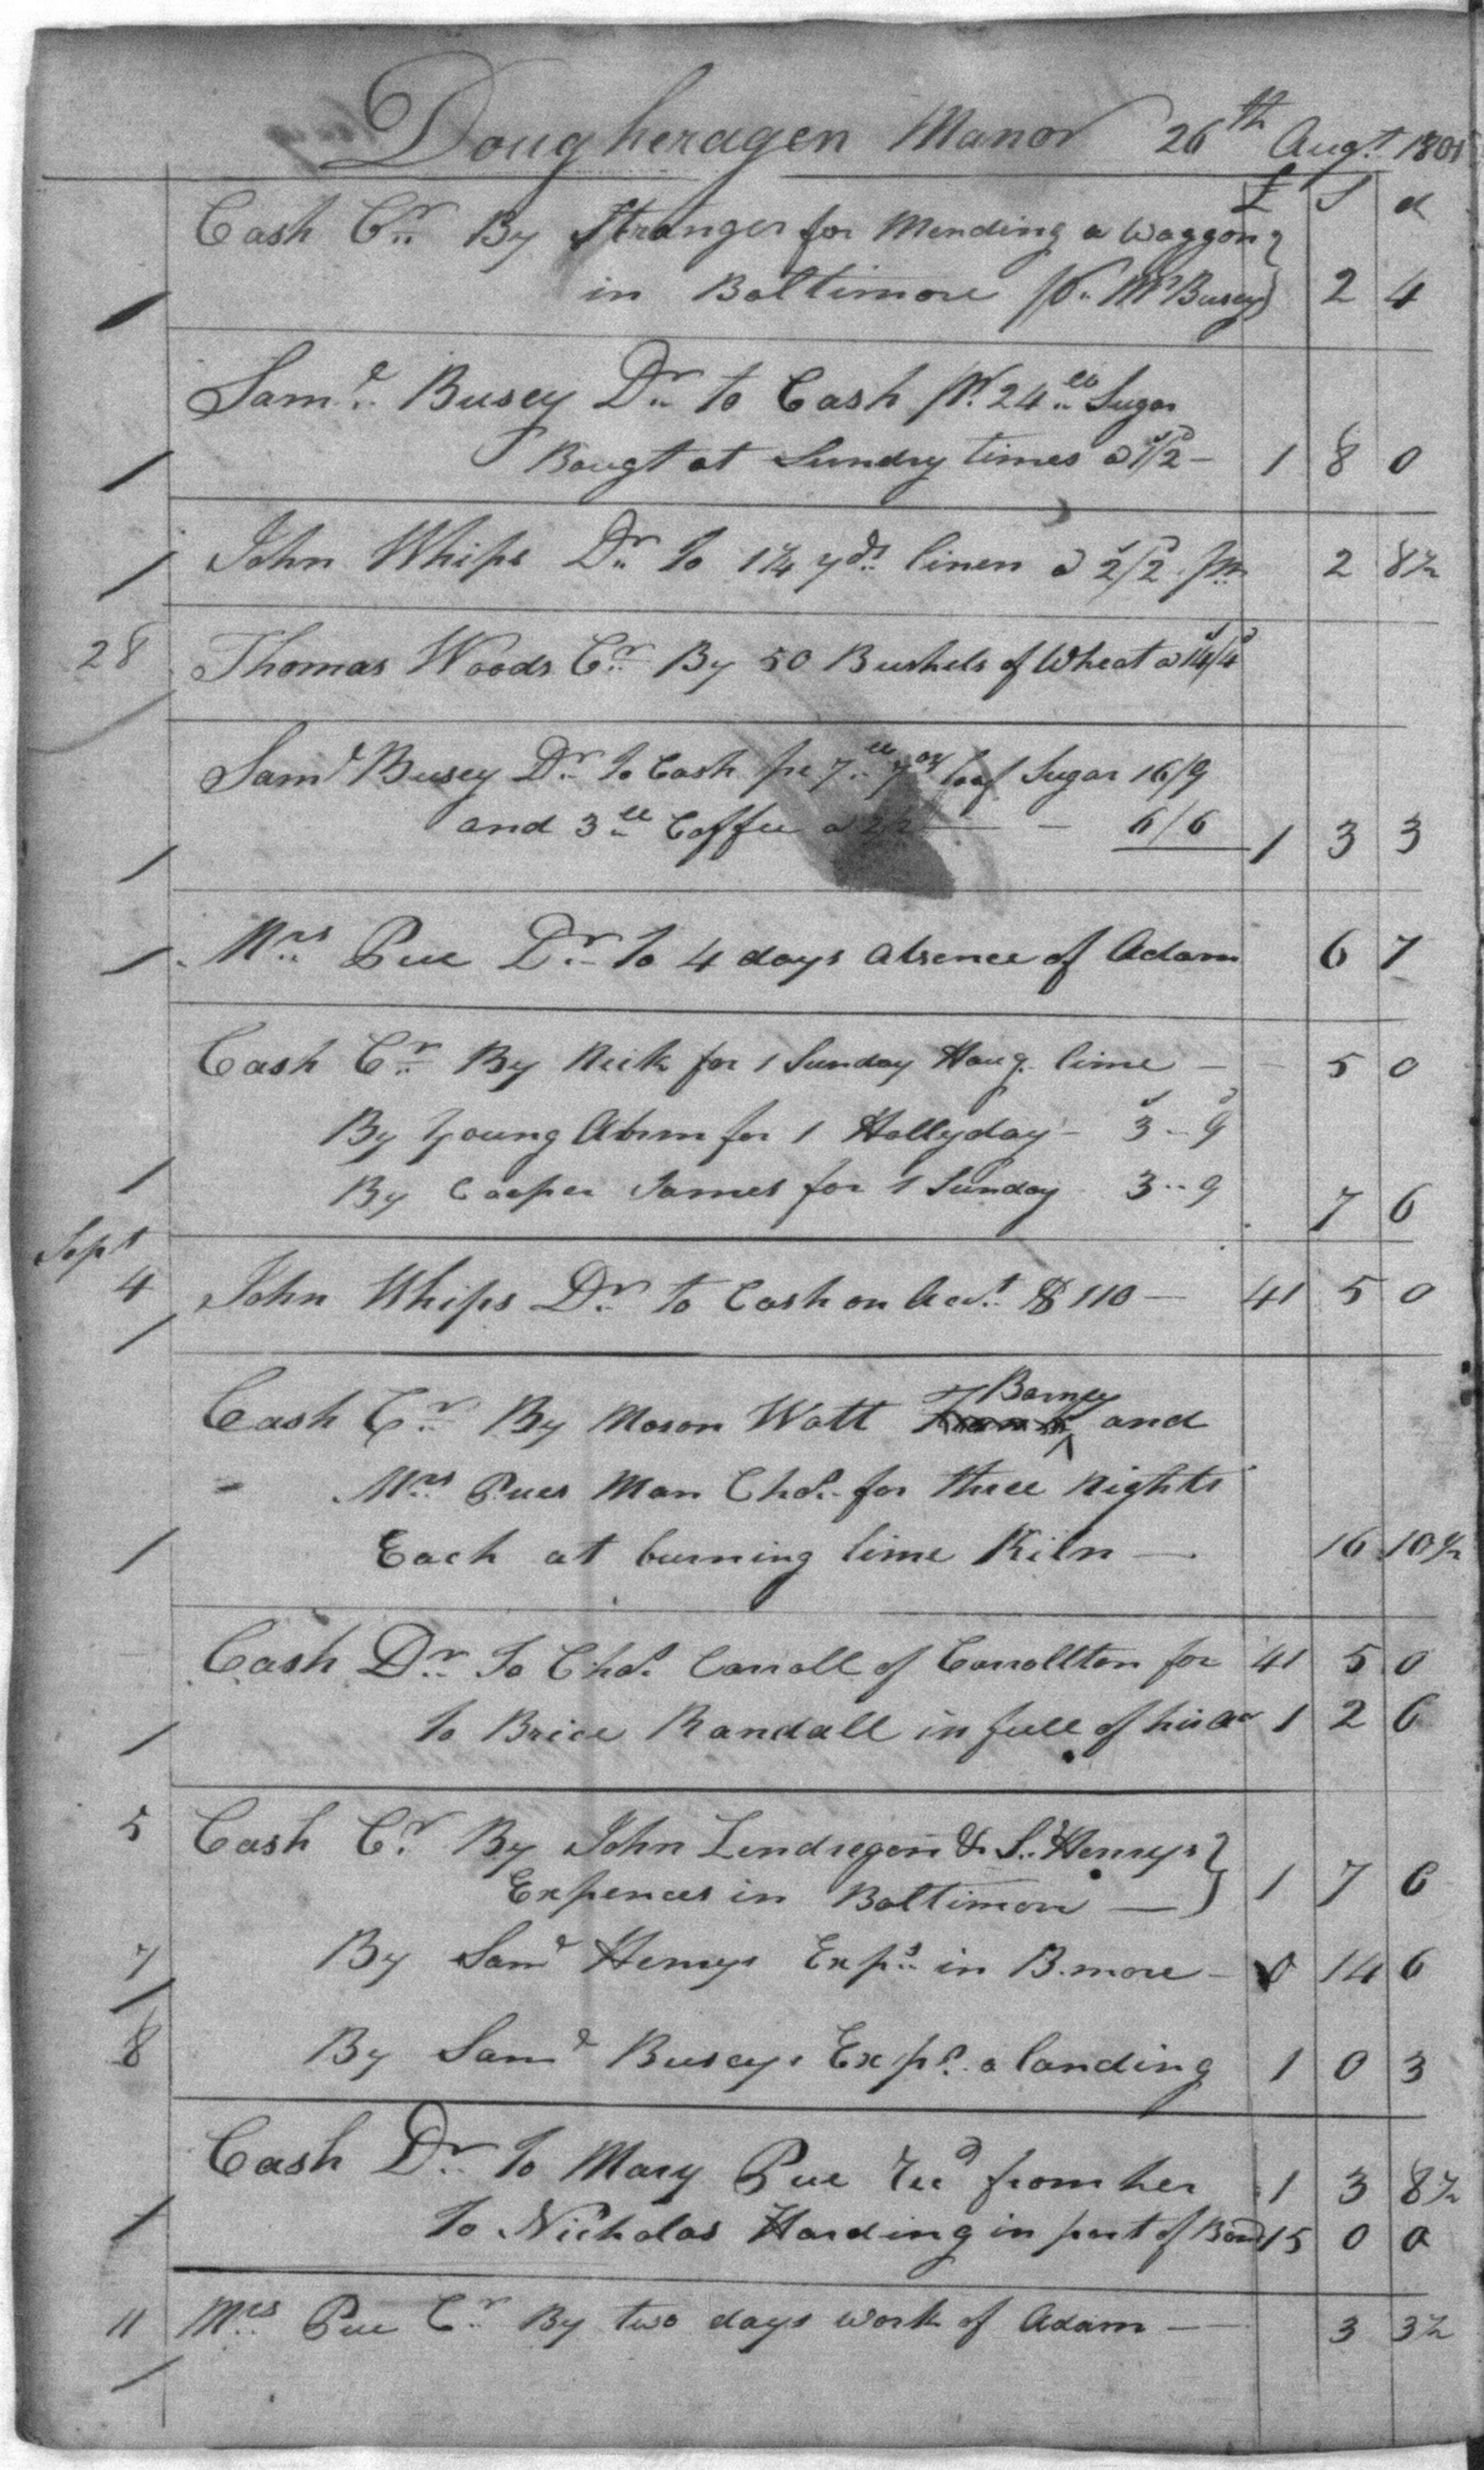 Dougheragen Manor 26th Augt. 1801
£ S d
Cash Cr. By Stranger for Mending a Waggon
in Baltimore pr. Mr Busey 2 4
Saml. Busey Dr. to Cash pr. 24 lb Sugar
Bougt at Sundry times a 1/2 - 1 8 0
John Whips Dr. To 1 1/4 yds. linen a 2/2 pr. 2 8 1/2
28 Thomas Woods Cr. By 50 Bushels of Wheat a 14/4
Saml Busey Dr. To Cash pr 7 lb 7 oz loaf Sugar 16/9
and 3 lb Coffee a 2/2 - 6/6 1 3 3
Mrs. Pue Dr. To 4 days absence of Adam 6 7
Cash Cr. By Nick for 1 Sunday Haug. lime - 5 0
By Young Abrm for 1 Hollyday - 3 .. 9
By Cooper James for 1 Sunday 3 .. 9 7 6
Sept
4 John Whips Dr. to Cash on Acct. $110 - 41 5 0
Barney
Cash Cr. By Mason Watt and
Mrs. Pues Man Chas. for three Nights
Each at burning lime Kiln - 16 10 1/2
Cash Dr. To Chas. Carroll of Carrollton for 41 5 0
To Brice Randall in full of his ac 1 2 6
5 Cash Cr. By John Lendregen & S. Henrys
Expences in Baltimore - 1 7 6
7 By Saml Henrys Exps. in B.more - 0 14 6
8 By Saml Buseys Exps. a landing 1 0 3
Cash Dr. To Mary Pue recd from her 1 3 8 1/2
To Nicholas Harding in part of Bond 15 0 0
11 Mrs. Pue Cr. By two days work of Adam - 3 3 1/2